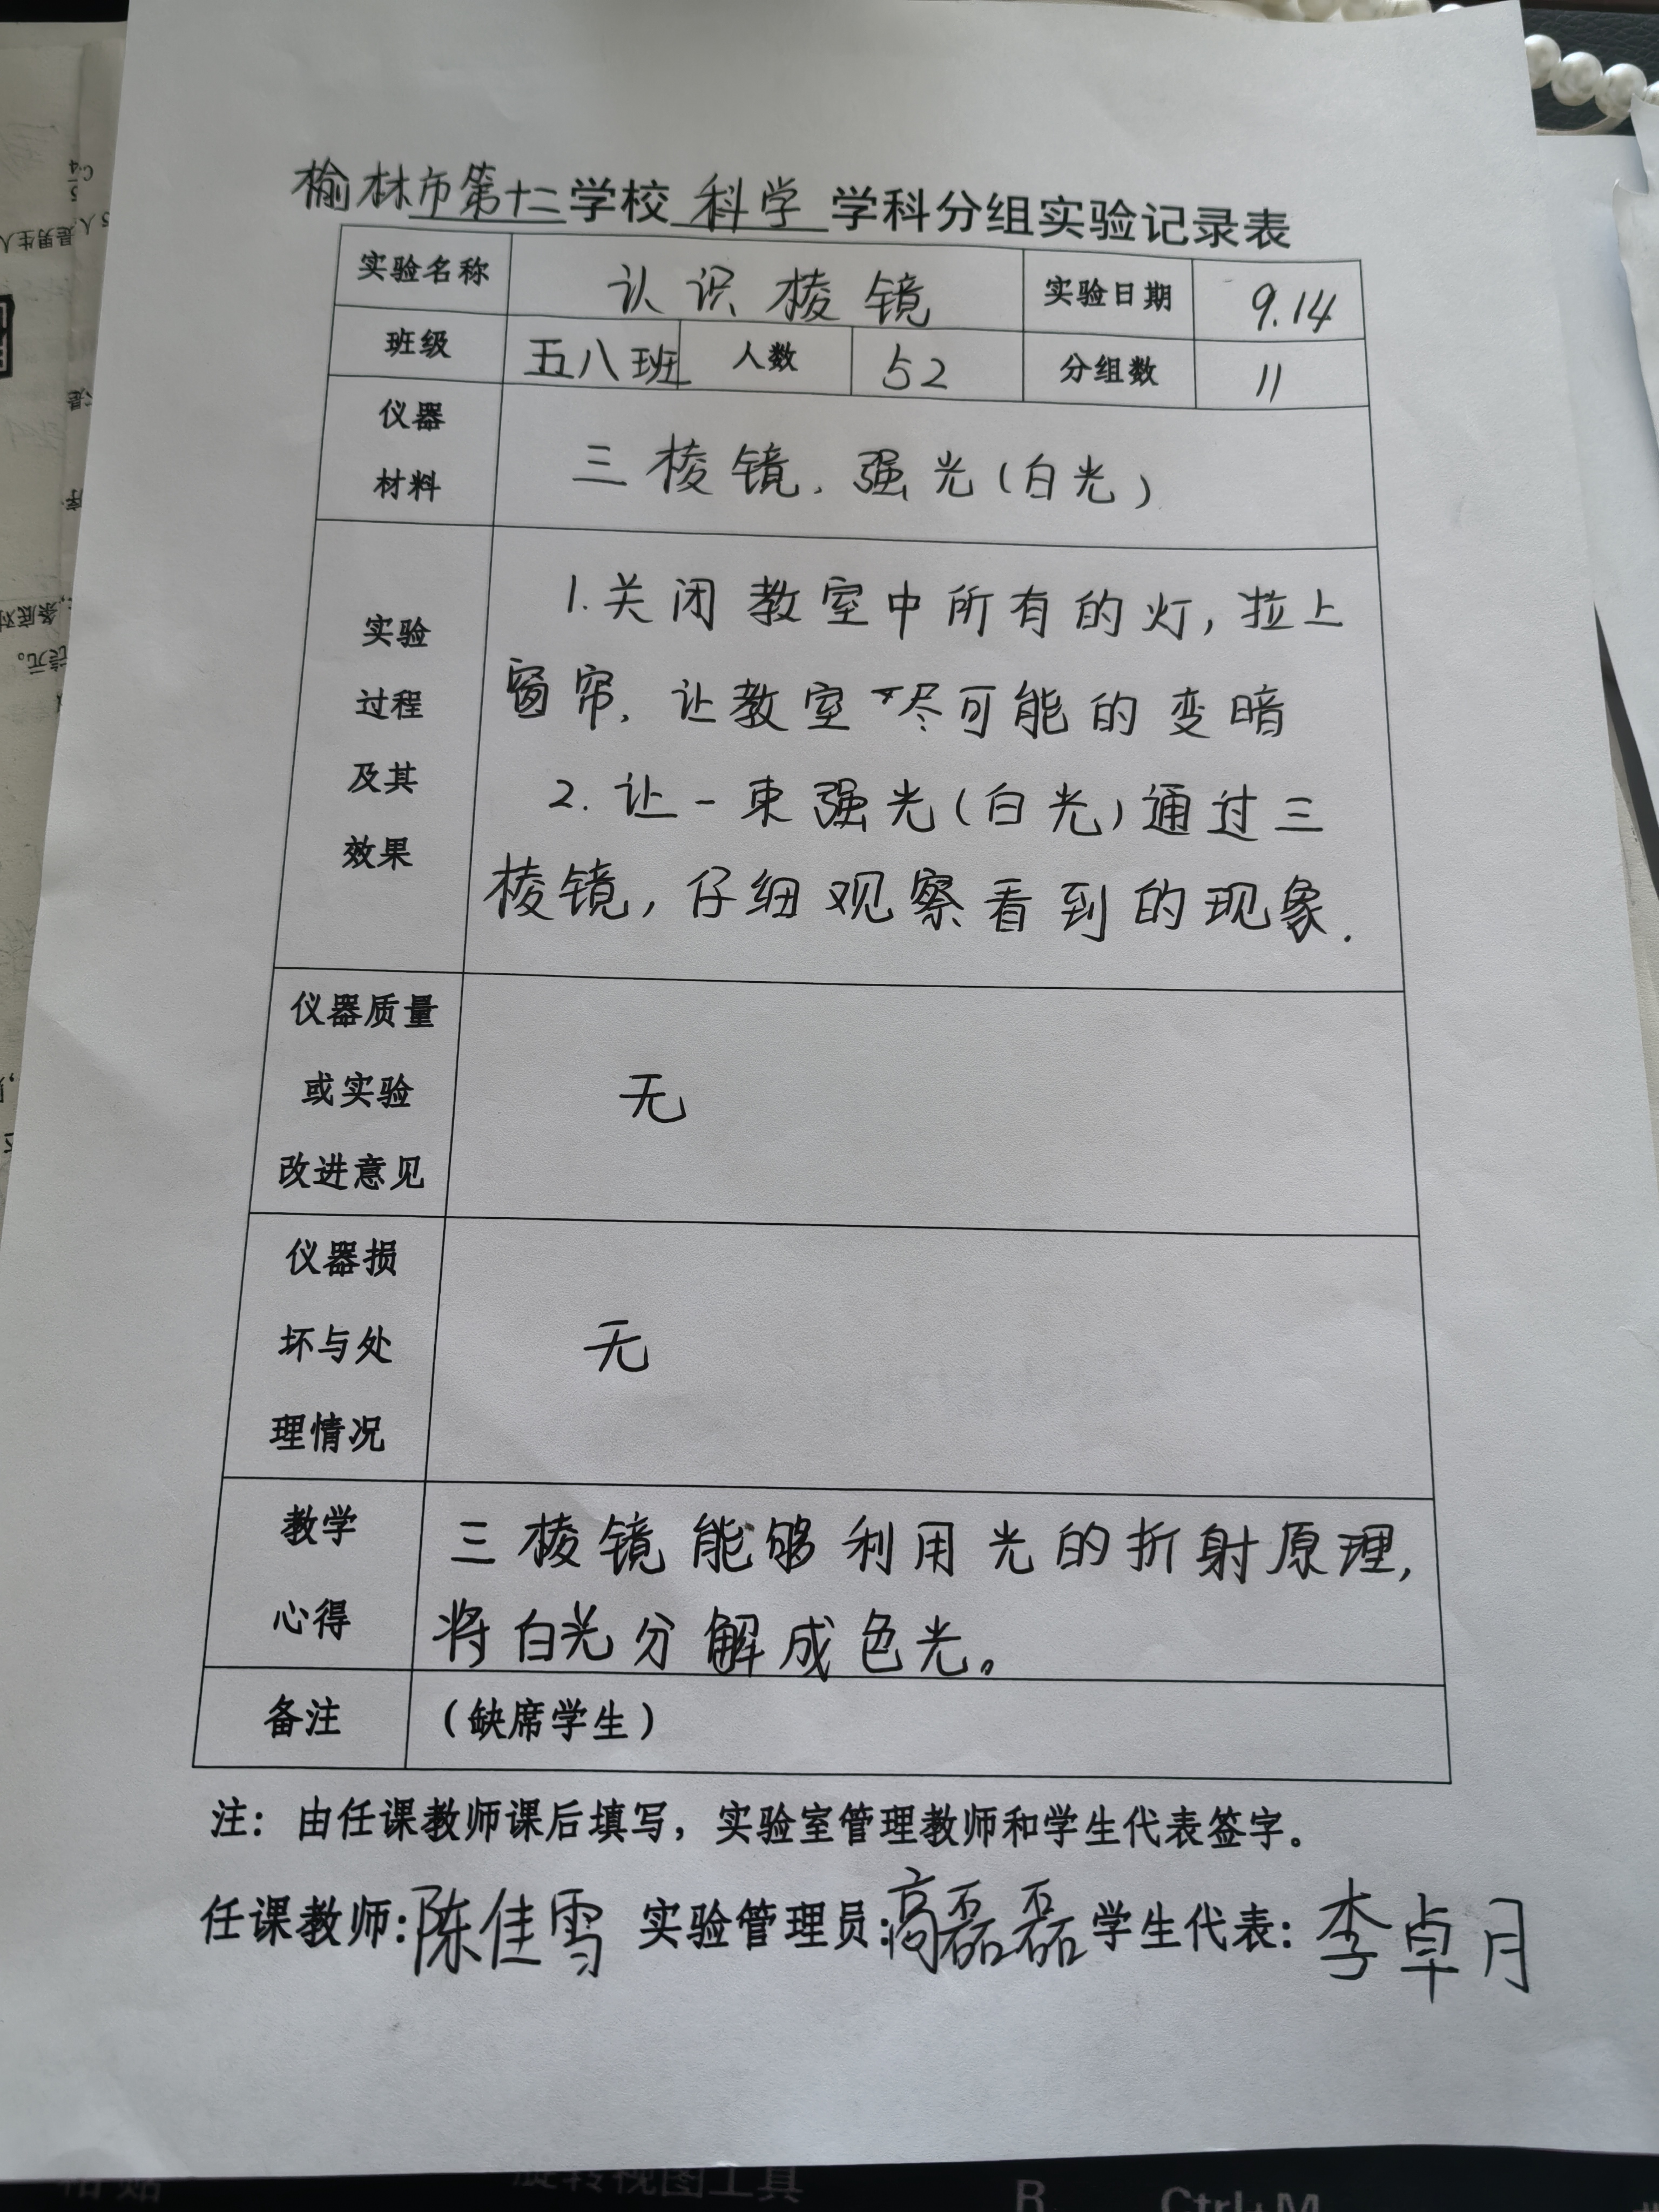 榆林市第十二学校 科学 学科分组实验记录表
实验名称 认识棱镜 实验日期 9.14
班级 五八班 人数 52 分组数 11
仪器
材料
三棱镜、强光(白光)
实验
过程
及其
效果
1.关闭教室中所有的灯,拉上
窗帘,让教室尽可能的变暗
2.让一束强光(白光)通过三
棱镜,仔细观察看到的现象.
仪器质量
或实验
改进意见
无
仪器损
坏与处
理情况
无
教学
心得
三棱镜能够利用光的折射原理,
将白光分解成色光。
备注 (缺席学生)
注:由任课教师课后填写,实验室管理教师和学生代表签字。
任课教师:陈佳雪 实验管理员:高磊磊 学生代表:李卓月
旋转视图工具
R
Ctrl+M